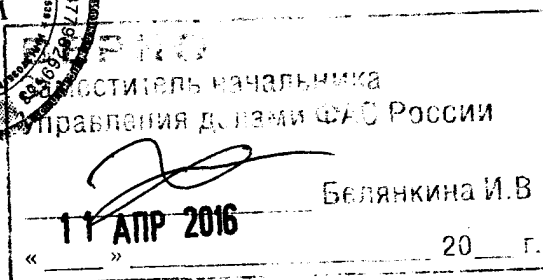 ВЕРНО
Заместитель начальника
Управления делами ФАС России
Белянкина И.В
11 АПР 2016
« » 20 г.